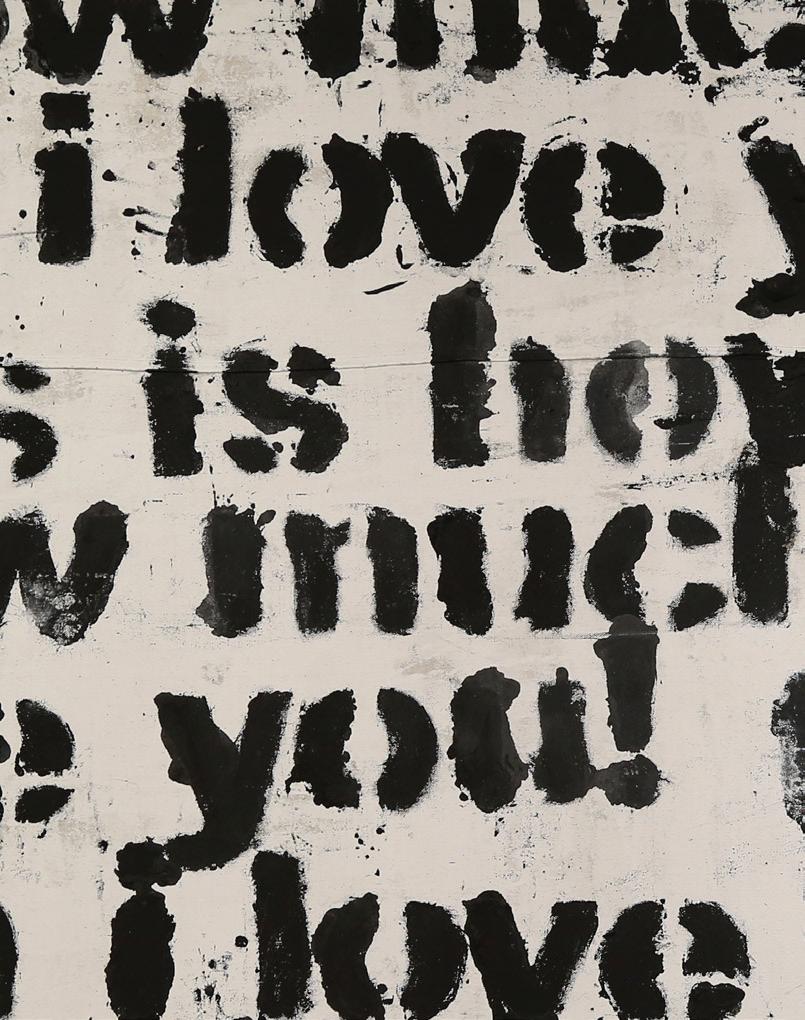 w muc
i love y
s is how
w much
e you!
i love